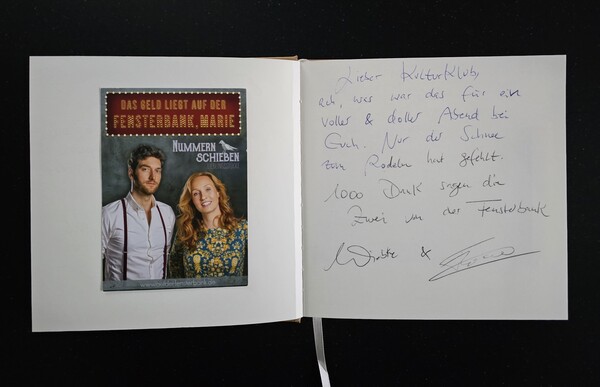 DAS GELD LIEGT AUF DER
FENSTERBANK, MARIE
NUMMERN
SCHIEBEN
Lieber Kulturklub,
ach, was war das für ein
voller & doller Abend bei
Euch. Nur der Schnee
zum Rodeln hat gefehlt.
1000 Dank sagen die
Zwei von der Fensterbank
Wiebke &